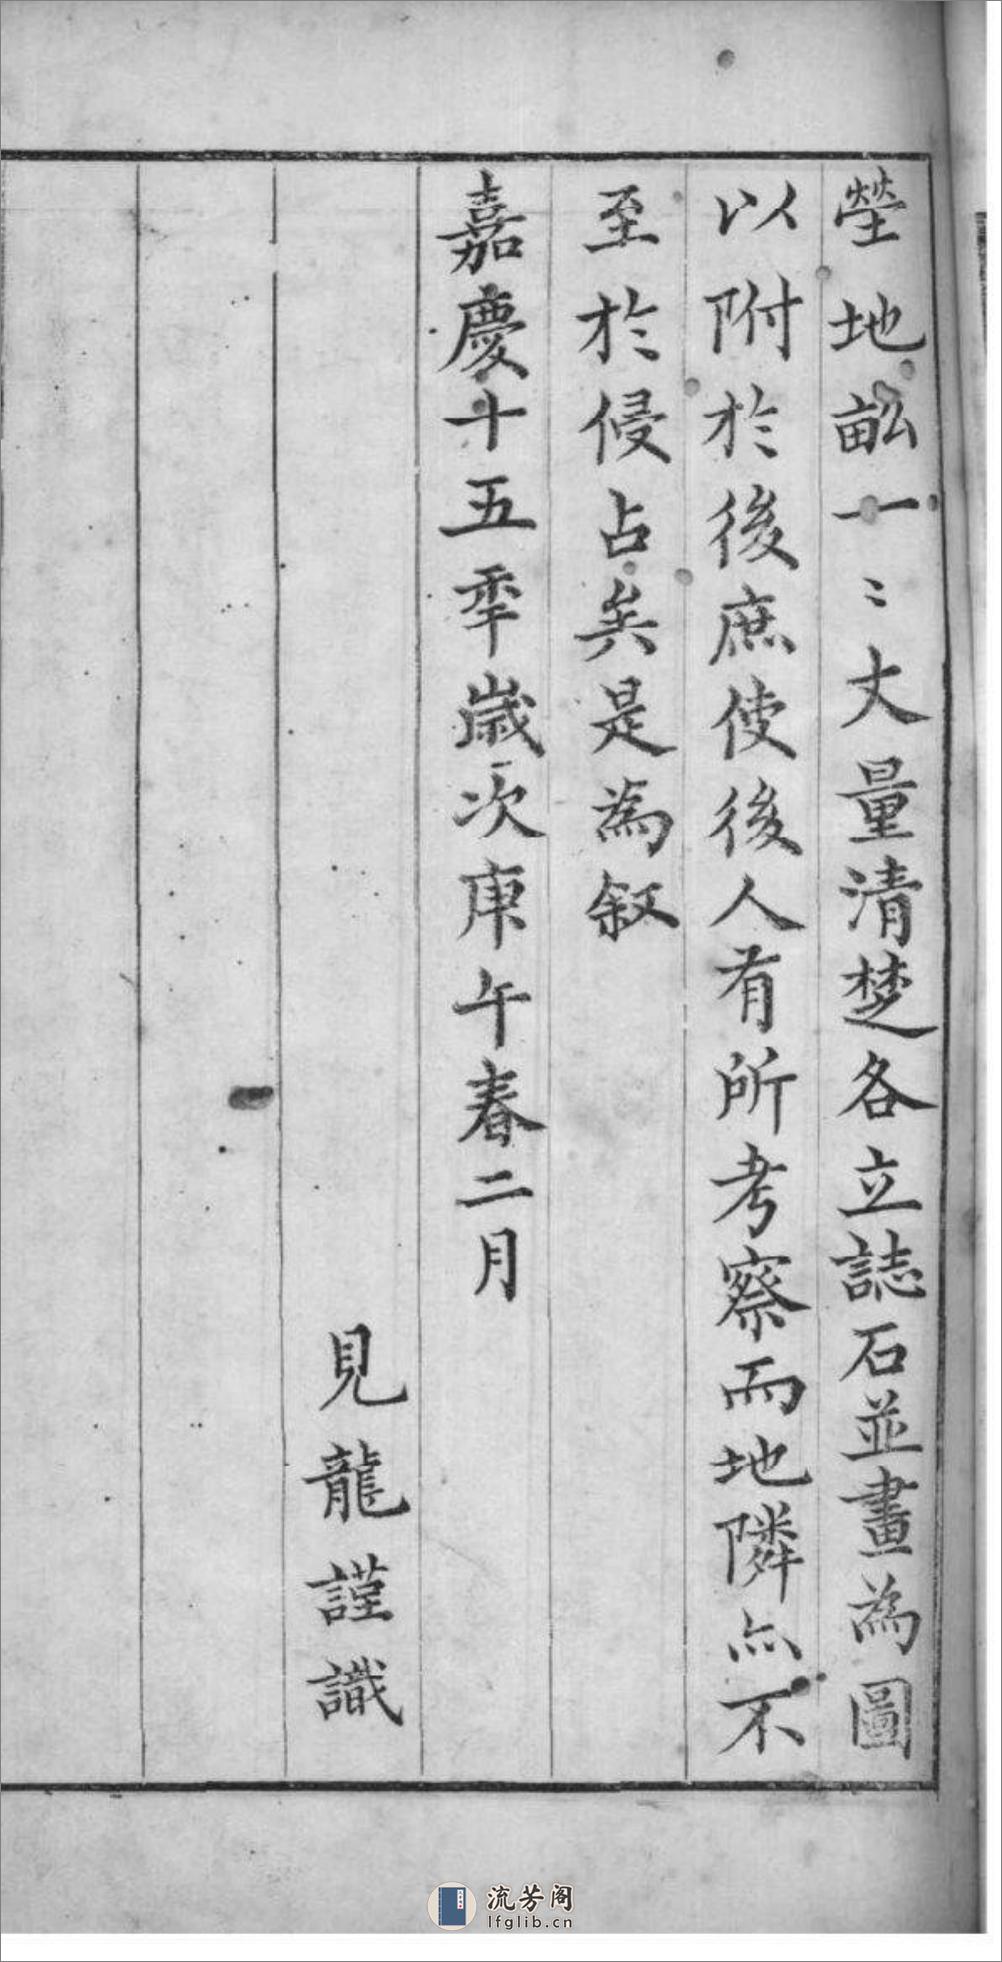 塋地畝一〻丈量清楚各立誌石並畫為圖
以附於後庶使後人有所考察而地隣亦不
至於侵占矣是為叙
嘉慶十五年歲次庚午春二月
見龍謹識
流芳阁
lfglib.cn